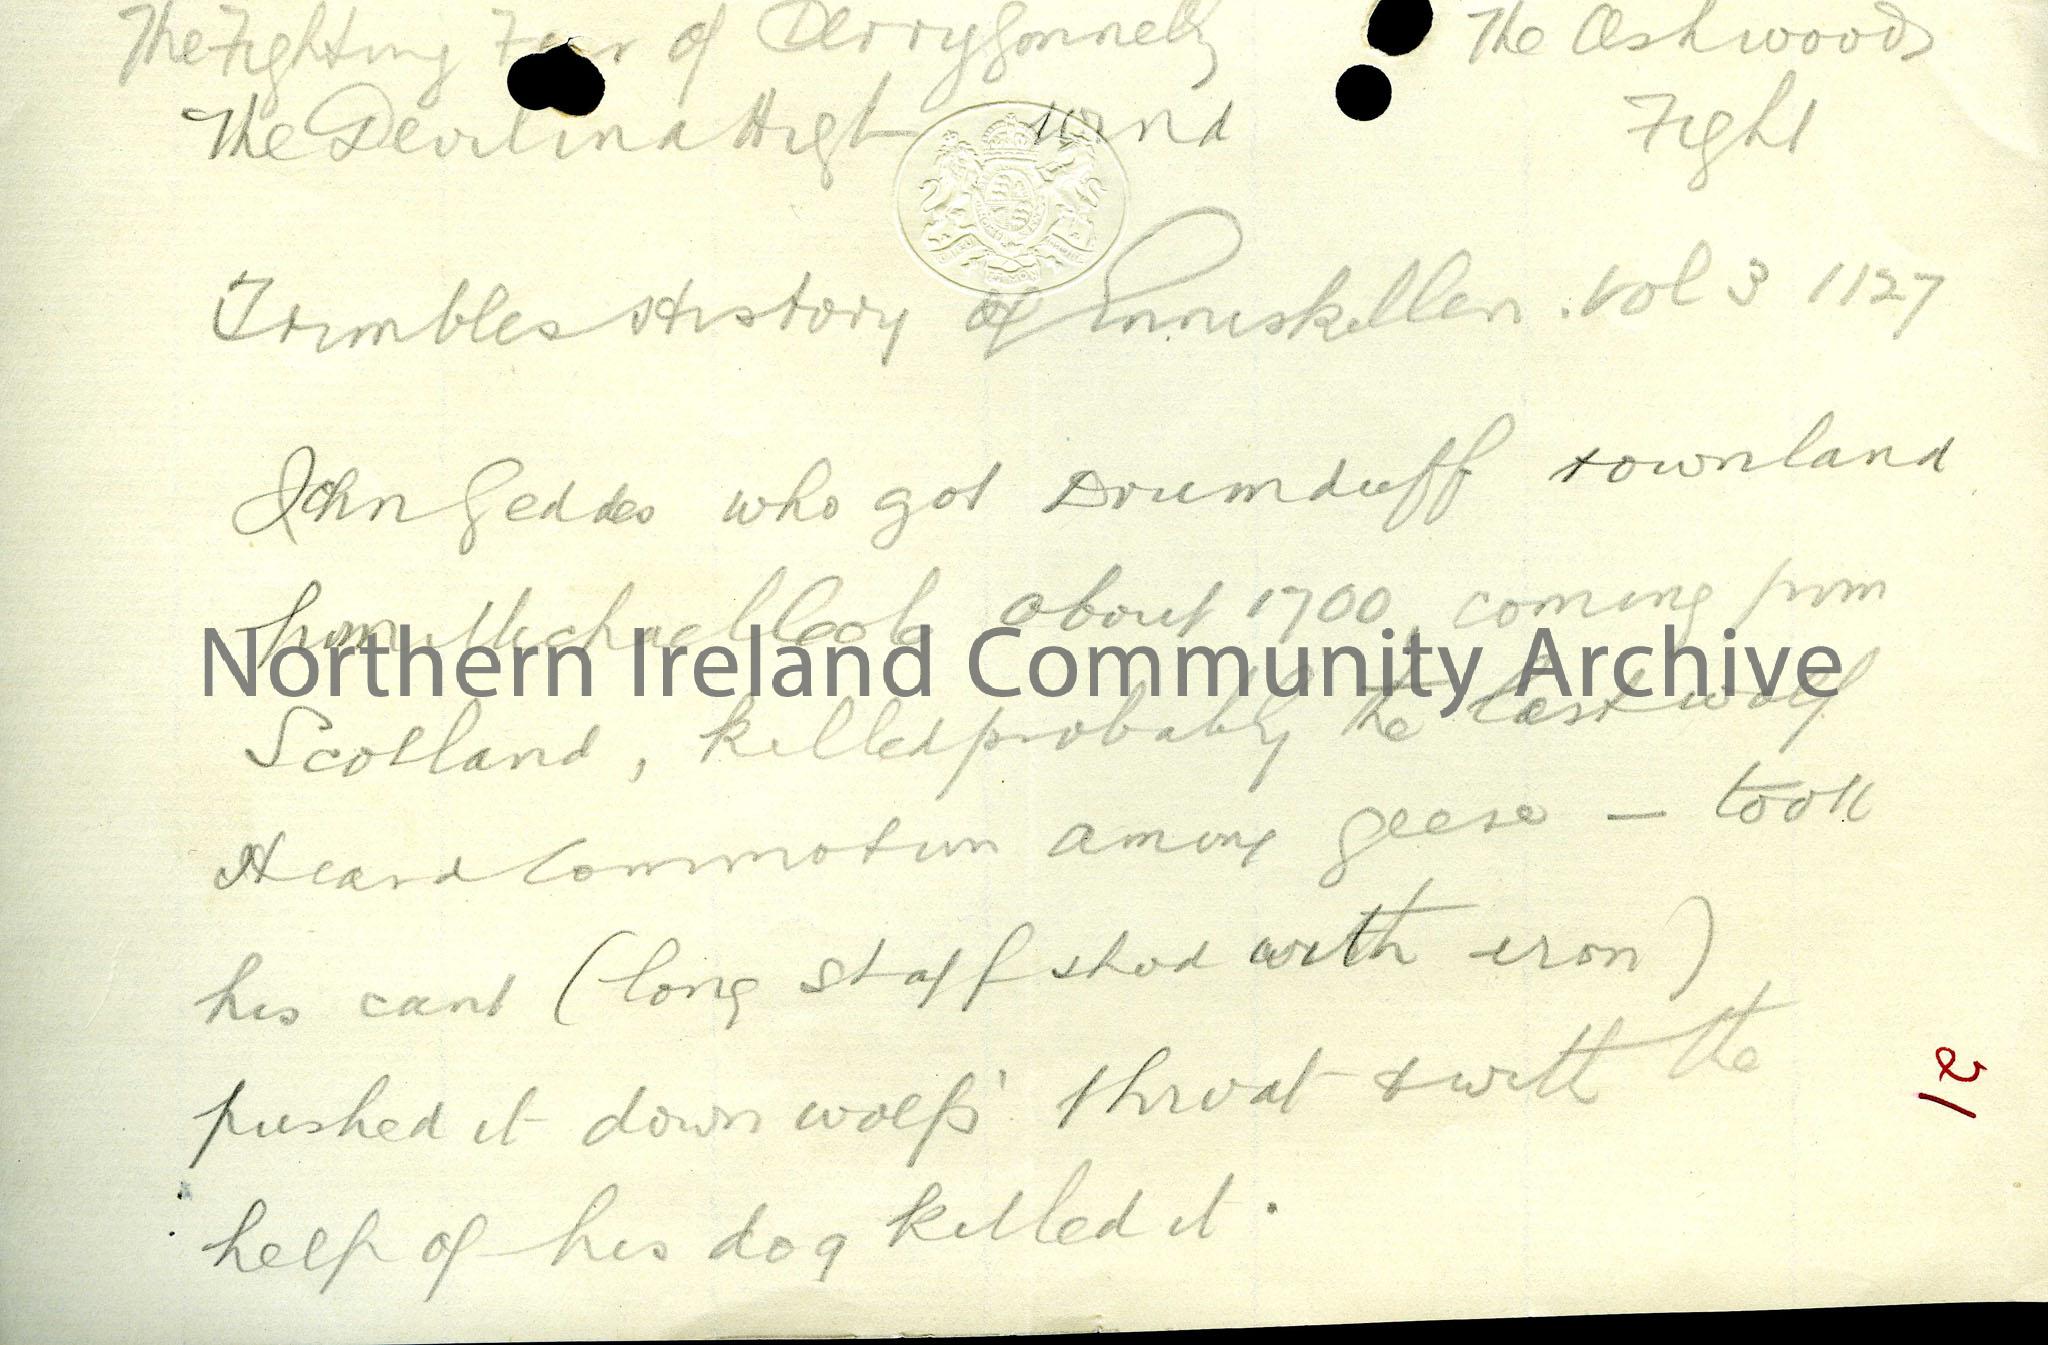 The Fighting Fair of Derrygonnelly
The Ashwoods
The Devil in a High Wind
Fight
Trimbles History of Enniskillen. Vol 3 1127
John Geddes who got Drumduff townland
from Michael Cole about 1700, coming from
Northern Ireland Community Archive
Scotland, killed probably the last wolf
Heard commotion among geese — took
his cant (long staff shod with iron)
pushed it down wolfs' throat & with the
help of his dog killed it.
12